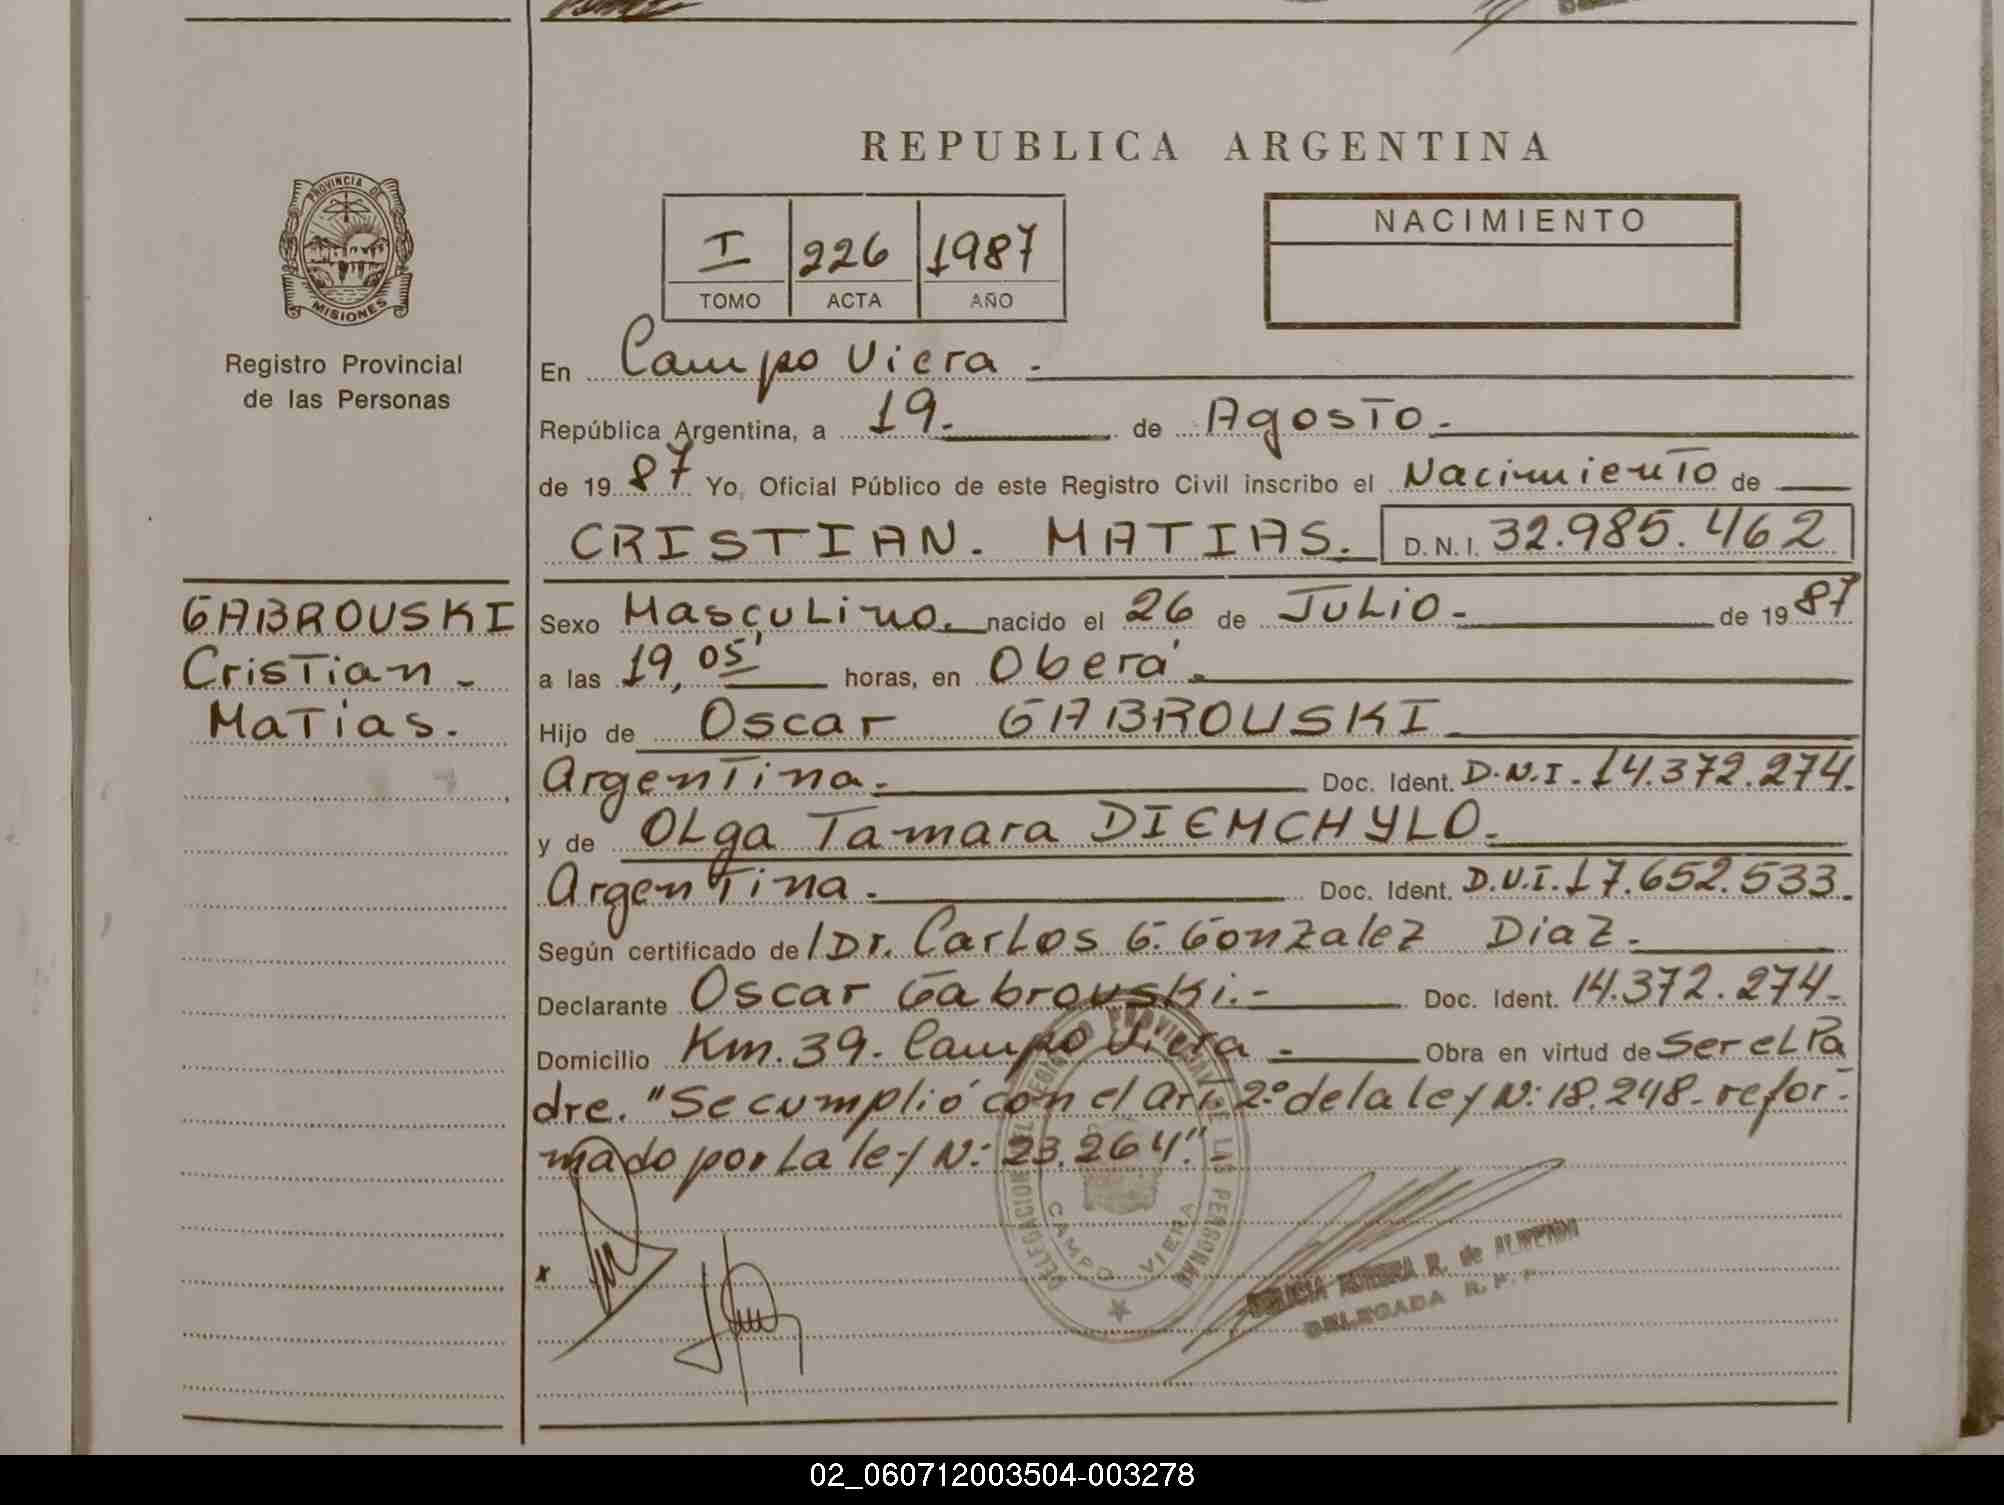 REPUBLICA ARGENTINA
PROVINCIA DE
MISIONES
Registro Provincial
de las Personas
I 226 1987
TOMO ACTA AÑO
NACIMIENTO
En Campo Viera.
República Argentina, a 19. de Agosto.
de 1987 Yo, Oficial Público de este Registro Civil inscribo el Nacimiento de
CRISTIAN. MATIAS. D.N.I. 32.985.462
GABROUSKI
Cristian.
Matias.
Sexo Masculino. nacido el 26 de Julio. de 1987
a las 19,05' horas, en Oberá.
Hijo de Oscar GABROUSKI
Argentina. Doc. Ident. D.N.I. 14.372.274.
y de Olga Tamara DIEMCHYLO.
Argentina. Doc. Ident. D.N.I. 17.652.533.
Según certificado de Dr. Carlos G. Gonzalez Diaz.
Declarante Oscar Gabrouski.- Doc. Ident. 14.372.274.
Domicilio Km. 39. Campo Viera - Obra en virtud de Ser el Pa
dre. "Se cumplió con el art. 2º de la ley Nº: 18.248. refor-
mado por la ley Nº: 23.264".
x
DELEGACION DEL REGISTRO PROVINCIAL DE LAS PERSONAS
CAMPO VIERA
R. de
DELEGADA R.P.P.
02_060712003504-003278